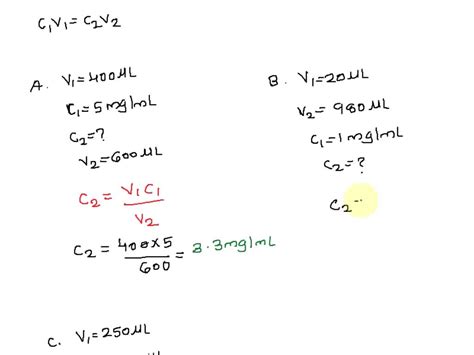 C₁V₁ = C₂V₂
A. V₁=400µL
C₁=5mg/mL
C₂=?
V₂=600µL
C₂ = V₁C₁
V₂
C₂ = 400×5 = 3.3mg/mL
600
B. V₁=20µL
V₂ = 980µL
C₁=1mg/mL
C₂=?
C₂ =
C. V₁=250µL